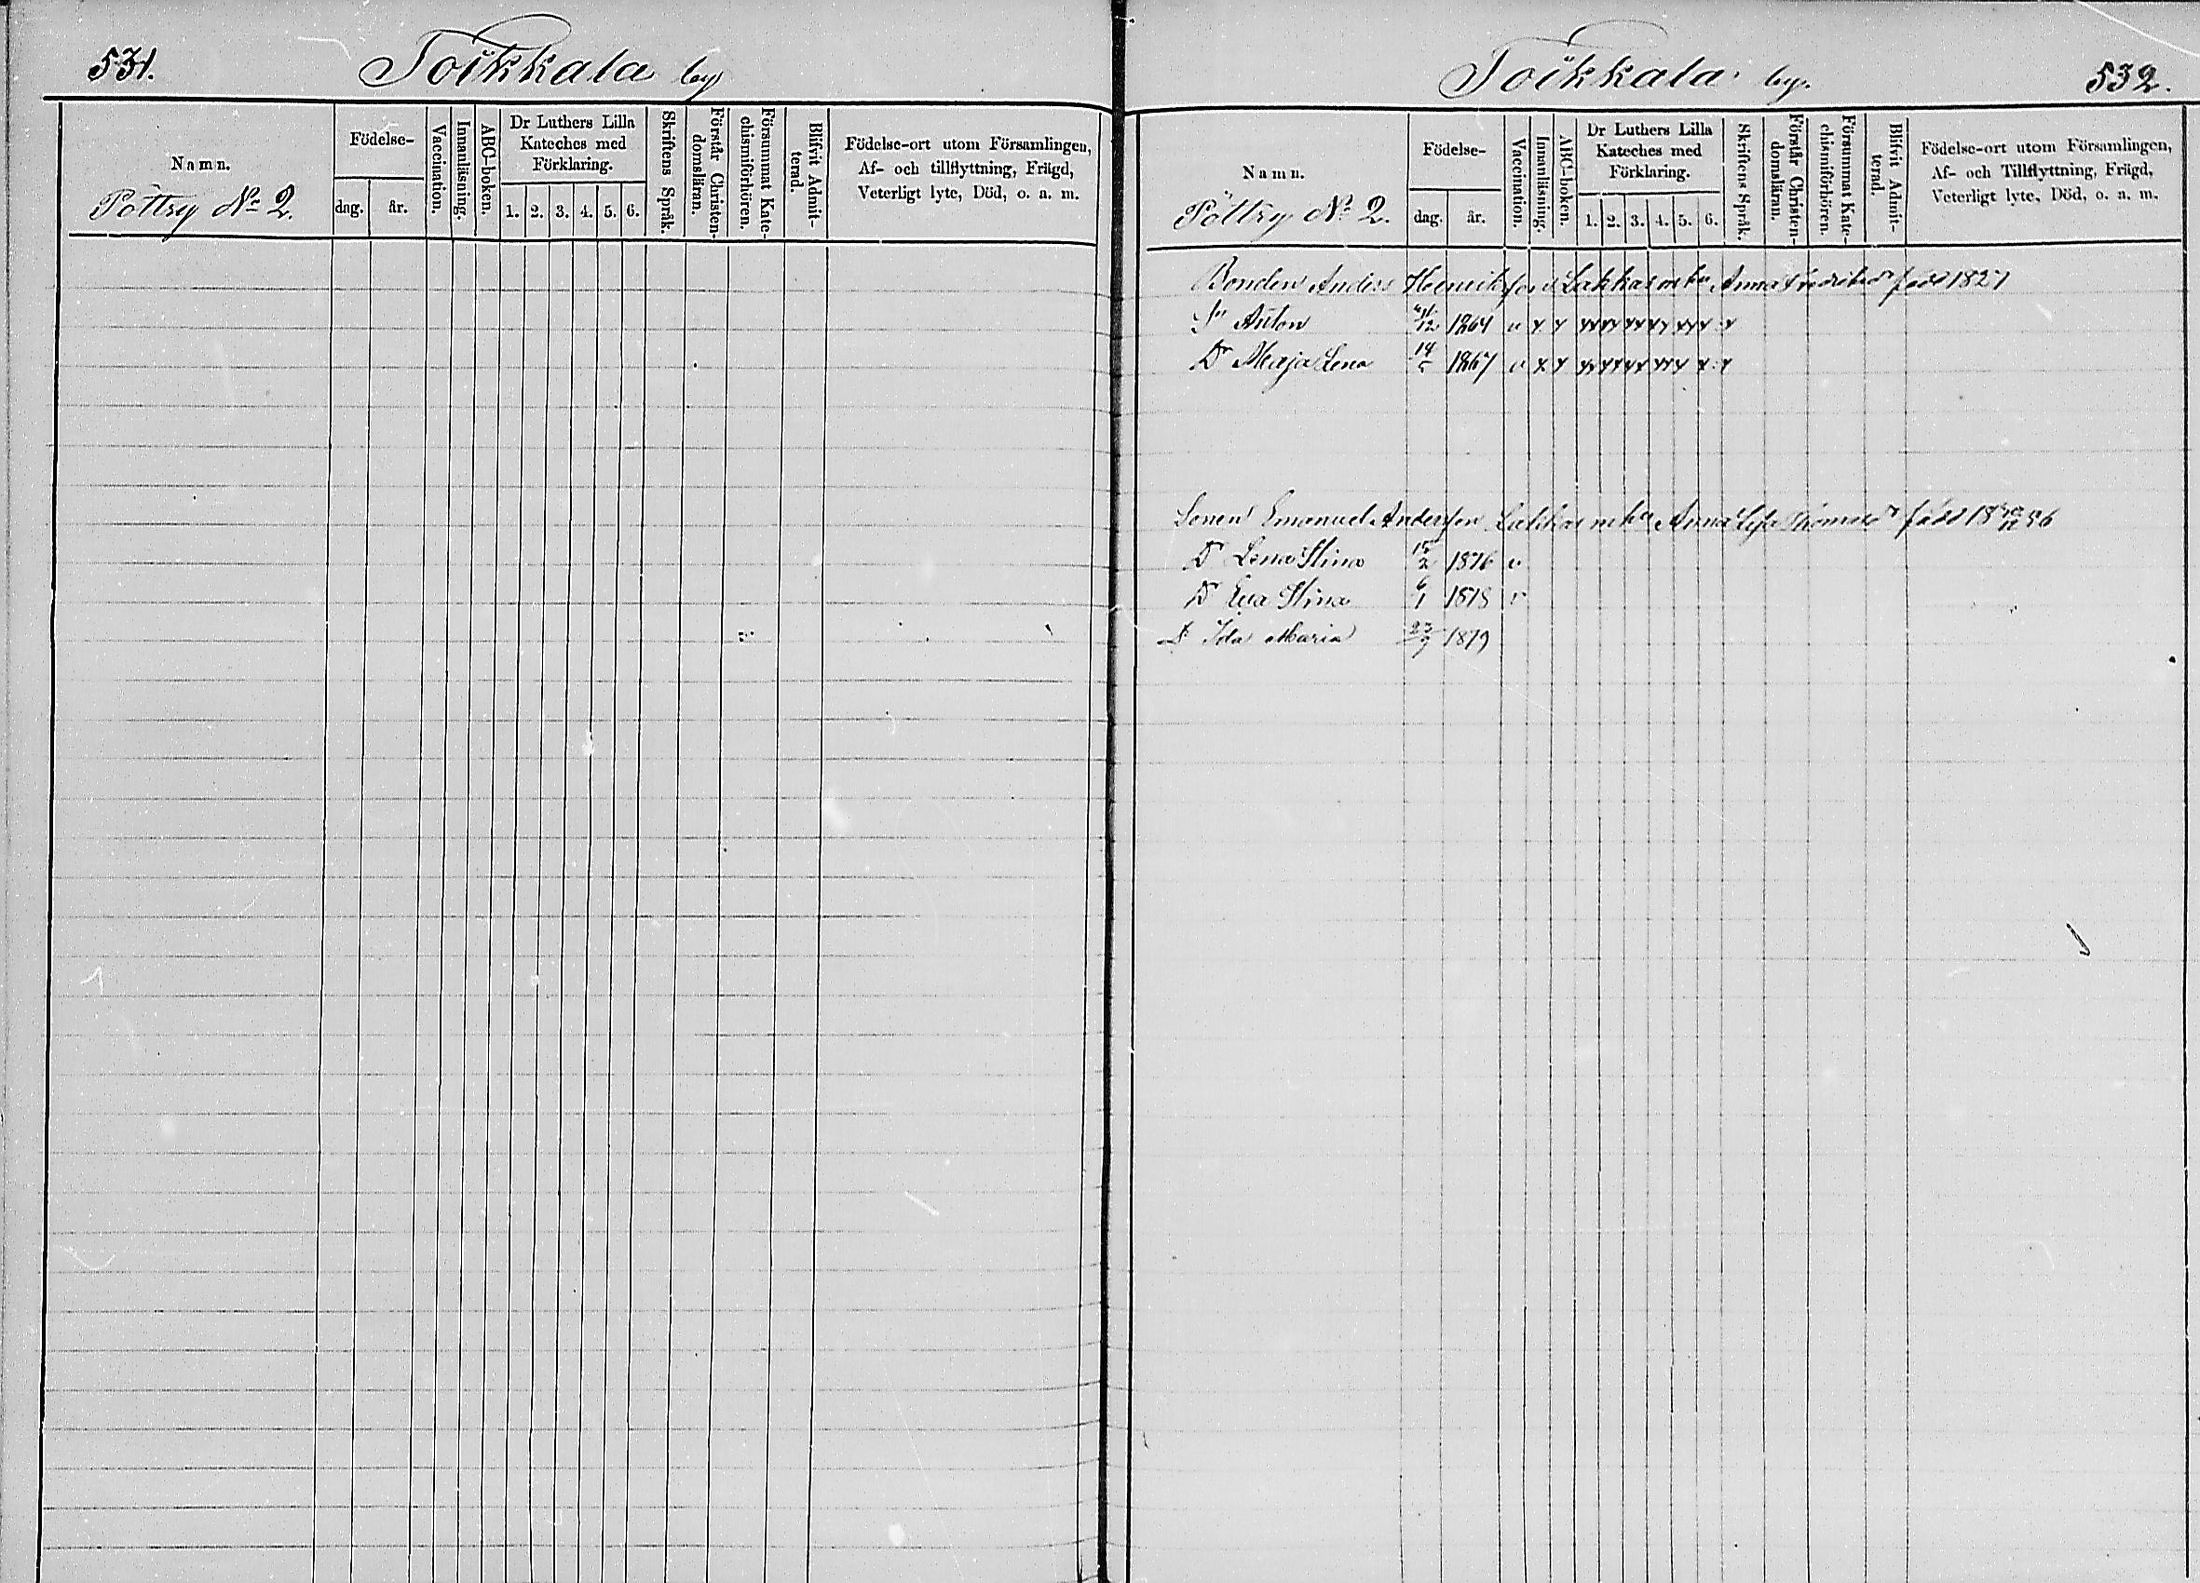 531. Toikkala by
Namn.
Pöttry No 2.
Födelse-
dag. år.
Vaccination.
Innanläsning.
ABC-boken.
Dr Luthers Lilla
Kateches med
Förklaring.
1. 2. 3. 4. 5. 6.
Skriftens Språk.
Förstår Christen-
domsläran.
Försummat Kate-
chismiförhören.
Blifvit Admit-
terad.
Födelse-ort utom Församlingen,
Af- och tillflyttning, Frägd,
Veterligt lyte, Död, o. a. m.
Toikkala by. 532.
Namn.
Pöttry No 2.
Födelse-
dag. år.
Vaccination.
Innanläsning.
ABC-boken.
Dr Luthers Lilla
Kateches med
Förklaring.
1. 2. 3. 4. 5. 6.
Skriftens Språk.
Förstår Christen-
domsläran.
Försummat Kate-
chismiförhören.
Blifvit Admit-
terad.
Födelse-ort utom Församlingen,
Af- och Tillflyttning, Frägd,
Veterligt lyte, Död, o. a. m.
Bonden Anders Henriksson Lakkas m hu Anna Fredriksdr född 1827
Sn Anton 1864 v
Dr Maja Lena 1867 v
Sonen Emanuel Andersson Lakkas m hu Anna Lisa Thomasdr född 18 56
Dr Lena Stina 15/2 1876 v
Dr Eva Stina 6/1 1878 v
Dr Ida Maria 23/9 1879